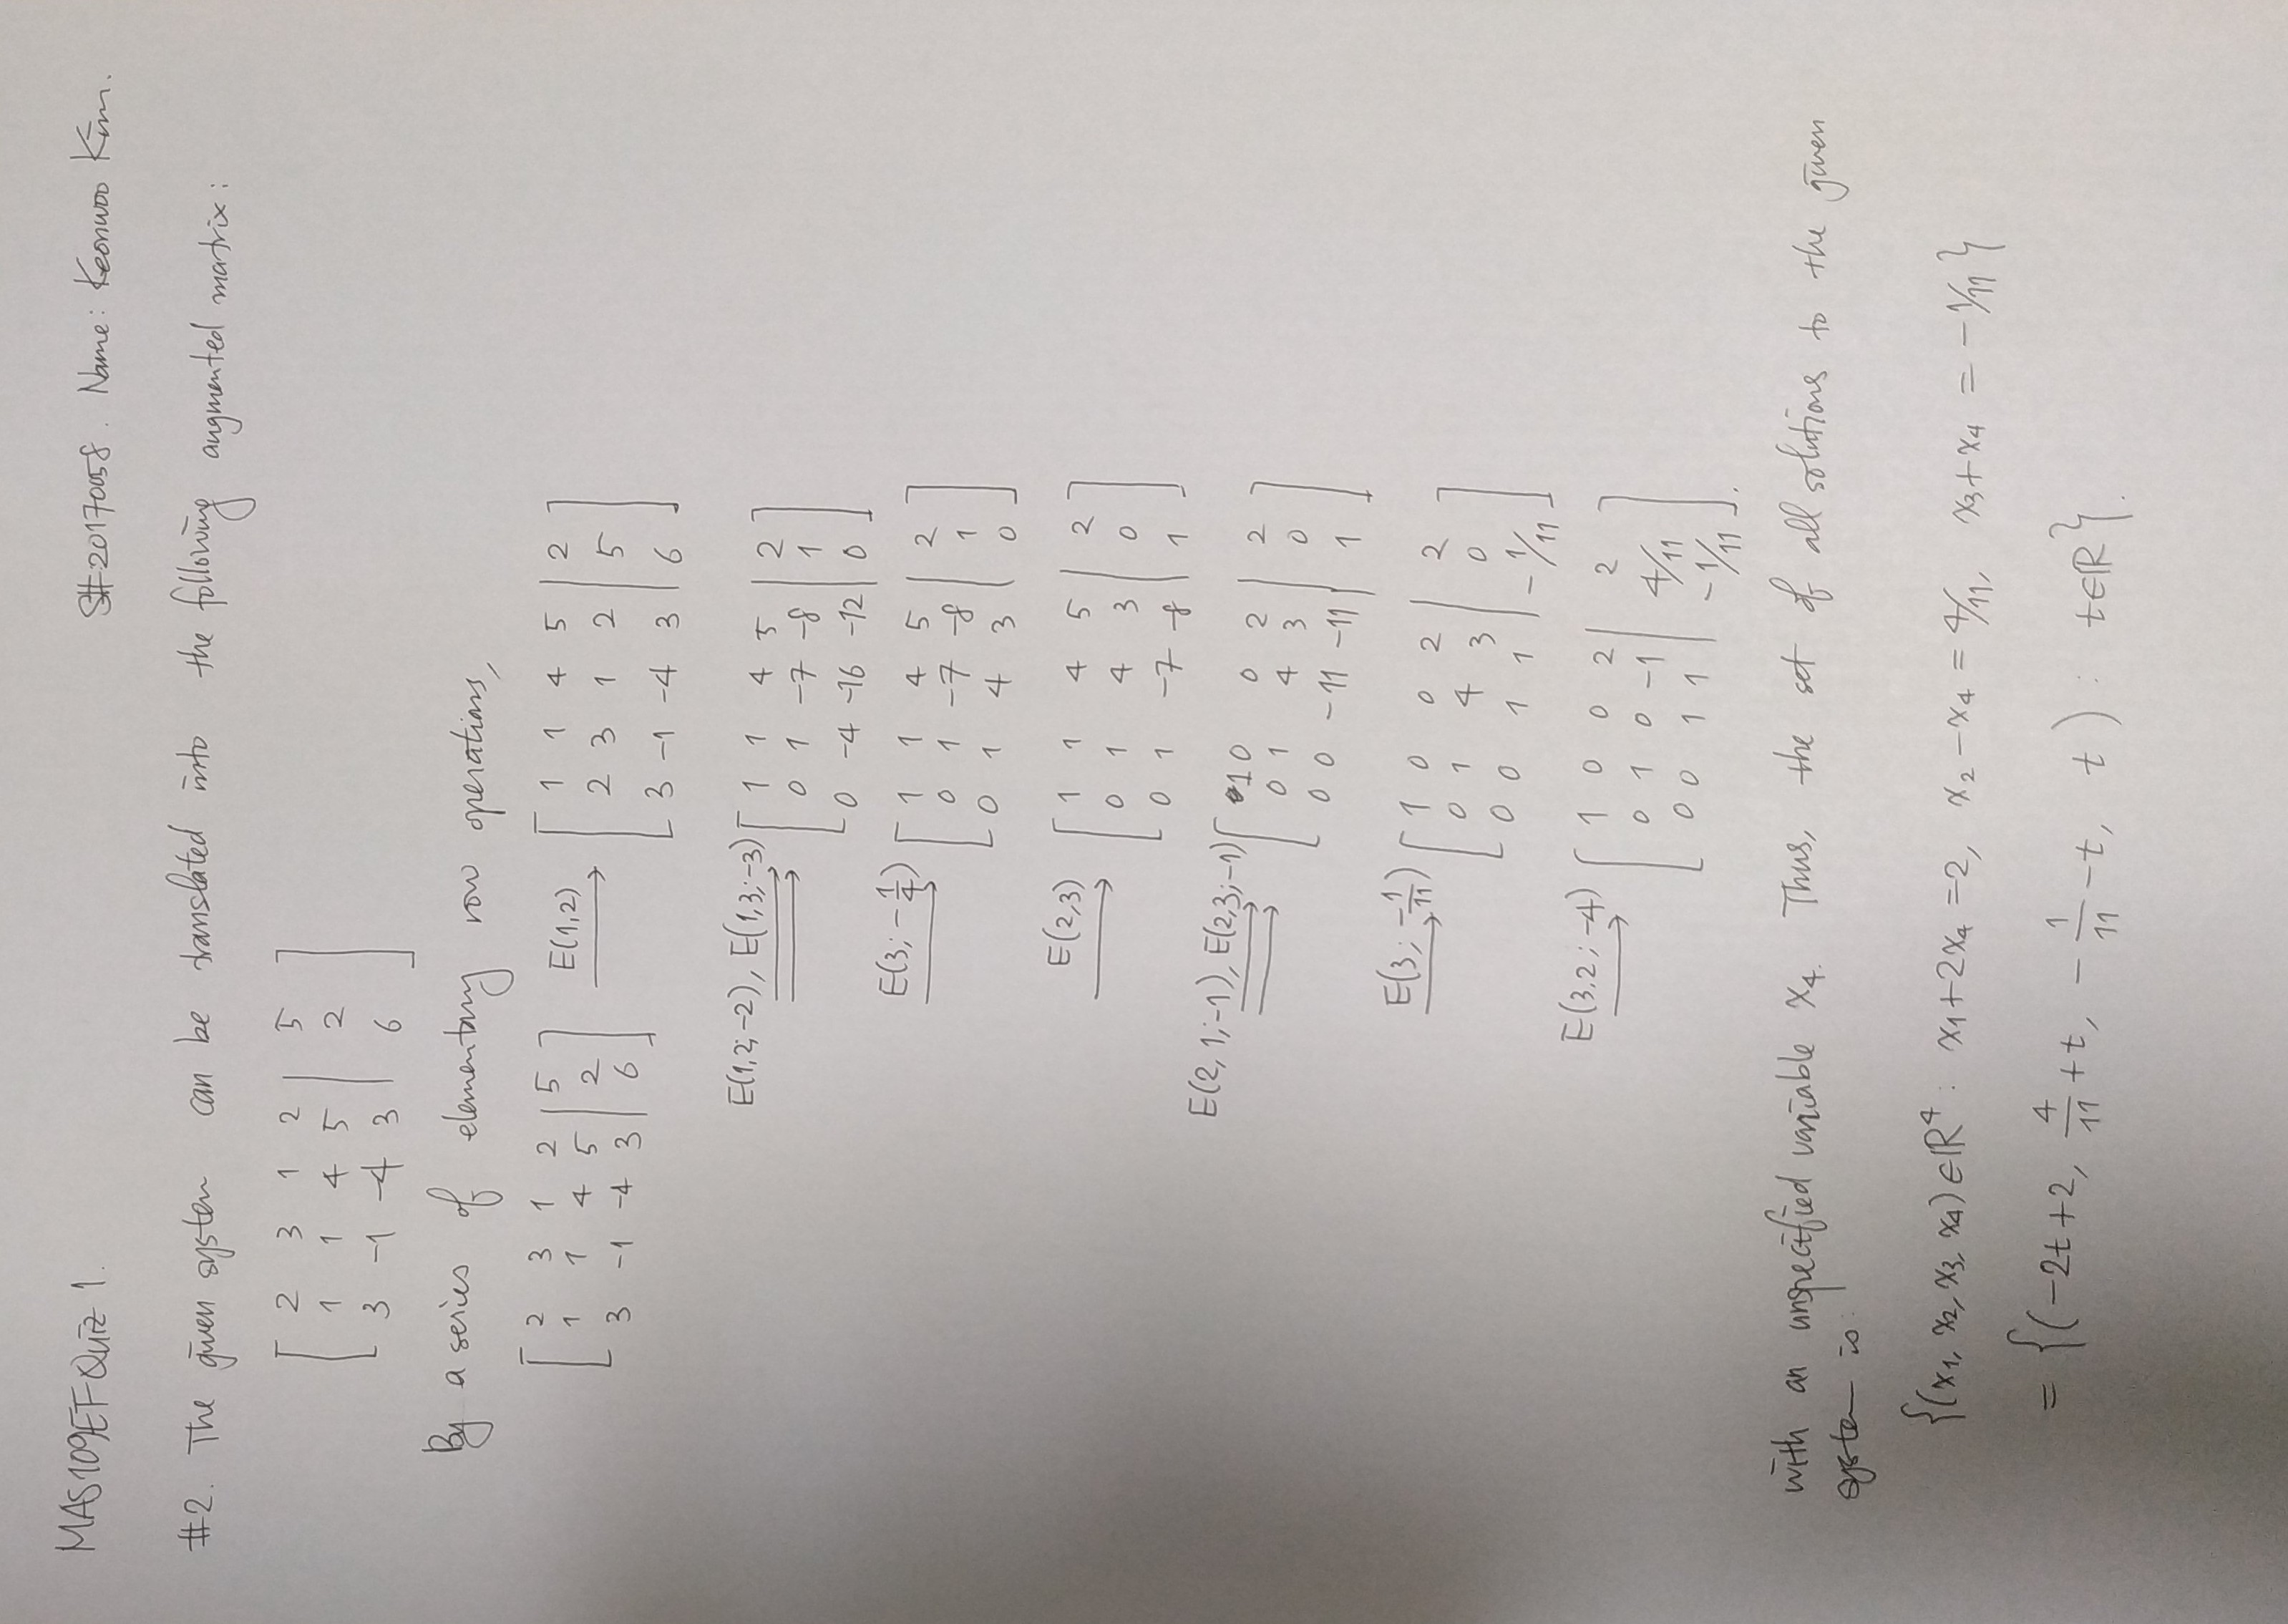 MAS109EF Quiz 1. S#20170058. Name: Keonwoo Kim.
#2. The given system can be translated into the following augmented matrix:
[ 2 3 1 2 | 5 ]
[ 1 1 4 5 | 2 ]
[ 3 -1 -4 3 | 6 ]
By a series of elementary row operations,
[ 2 3 1 2 | 5 ]
[ 1 1 4 5 | 2 ]
[ 3 -1 -4 3 | 6 ]
E(1,2) →
[ 1 1 4 5 | 2 ]
[ 2 3 1 2 | 5 ]
[ 3 -1 -4 3 | 6 ]
E(1,2;-2), E(1,3;-3)
[ 1 1 4 5 | 2 ]
[ 0 1 -7 -8 | 1 ]
[ 0 -4 -16 -12 | 0 ]
E(3; -1/4) →
[ 1 1 4 5 | 2 ]
[ 0 1 -7 -8 | 1 ]
[ 0 1 4 3 | 0 ]
E(2,3) →
[ 1 1 4 5 | 2 ]
[ 0 1 4 3 | 0 ]
[ 0 1 -7 -8 | 1 ]
E(2,1;-1), E(2,3;-1)
[ 1 0 0 2 | 2 ]
[ 0 1 4 3 | 0 ]
[ 0 0 -11 -11 | 1 ]
E(3; -1/11) →
[ 1 0 0 2 | 2 ]
[ 0 1 4 3 | 0 ]
[ 0 0 1 1 | -1/11 ]
E(3,2;-4) →
[ 1 0 0 2 | 2 ]
[ 0 1 0 -1 | 4/11 ]
[ 0 0 1 1 | -1/11 ].
with an unspecified variable x₄. Thus, the set of all solutions to the given
system is
{(x₁, x₂, x₃, x₄) ∈ ℝ⁴ : x₁+2x₄ = 2, x₂-x₄ = 4/11, x₃+x₄ = -1/11}
= {(-2t+2, 4/11+t, -1/11-t, t) : t∈ℝ}.